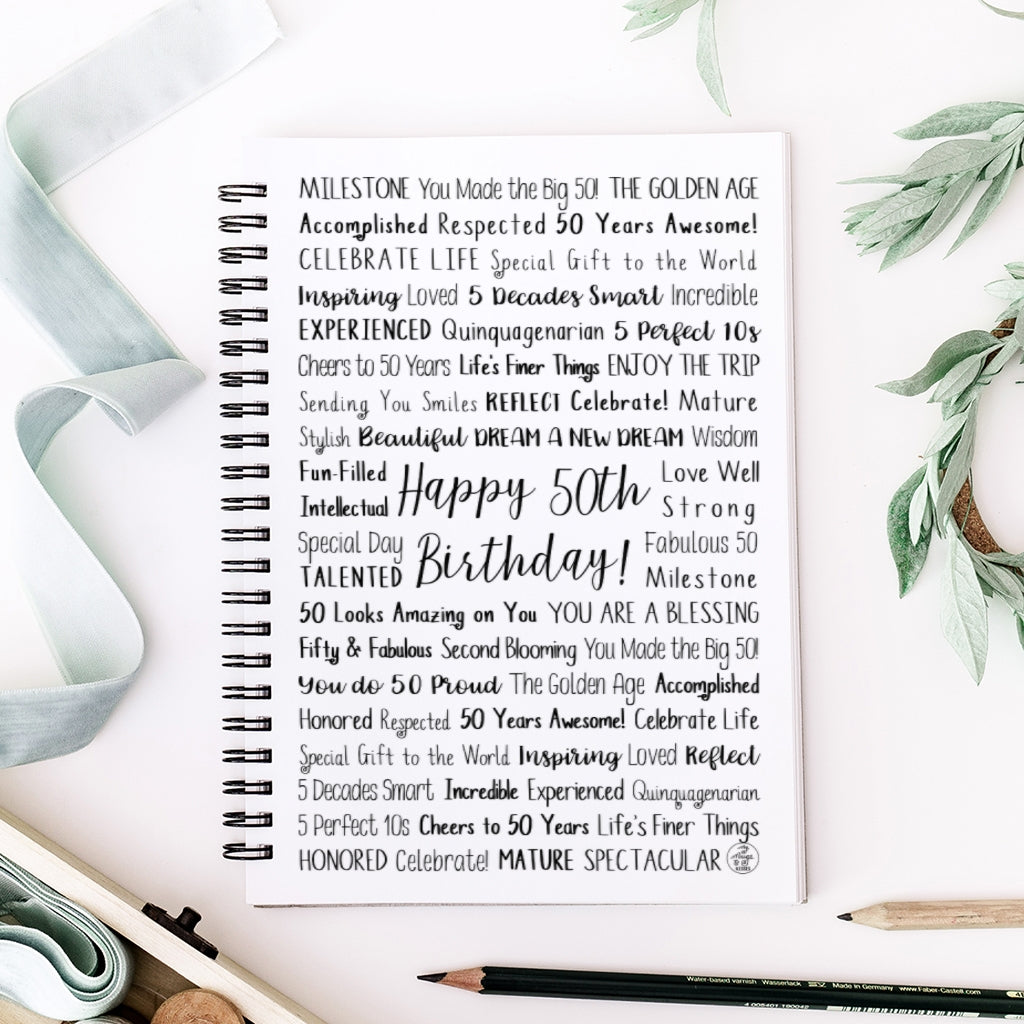 MILESTONE You Made the Big 50! THE GOLDEN AGE
Accomplished Respected 50 Years Awesome!
CELEBRATE LIFE Special Gift to the World
Inspiring Loved 5 Decades Smart Incredible
EXPERIENCED Quinquagenarian 5 Perfect 10s
Cheers to 50 Years Life's Finer Things ENJOY THE TRIP
Sending You Smiles REFLECT Celebrate! Mature
Stylish Beautiful DREAM A NEW DREAM Wisdom
Fun-Filled
Intellectual
Happy 50th
Love Well
Strong
Special Day
TALENTED
Birthday!
Fabulous 50
Milestone
50 Looks Amazing on You YOU ARE A BLESSING
Fifty & Fabulous Second Blooming You Made the Big 50!
You do 50 Proud The Golden Age Accomplished
Honored Respected 50 Years Awesome! Celebrate Life
Special Gift to the World Inspiring Loved Reflect
5 Decades Smart Incredible Experienced Quinquagenarian
5 Perfect 10s Cheers to 50 Years Life's Finer Things
HONORED Celebrate! MATURE SPECTACULAR
Water-based varnish Wasserlack Made in Germany www.Faber-Castell.com